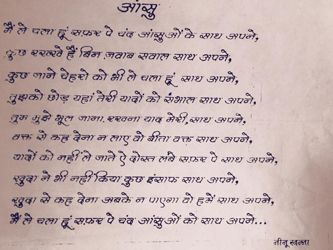 आंसु
मैं ले चला हूं सफ़र पे चंद आंसुओं के साथ अपने,
कुछ रखखे हैं बिन जवाब सवाल साथ अपने,
कुछ जाने चेहरों को भी ले चला हूं साथ अपने,
तुझको छोड़ यहां तेरी यादों को संभाल साथ अपने,
तुम मुझे भूल जाना, रखना याद मेरी, साथ अपने,
वक़्त से कह देना न लाए वो बीता वक़्त साथ अपने,
यादों को नहीं ले जाते ऐ दोस्त लंबे सफ़र पे साथ अपने,
ख़ुदा ने भी नहीं किया कुछ इंसाफ़ साथ अपने,
ख़ुदा से कह देना अबके न पाएगा वो हमें साथ अपने,
मैं ले चला हूं सफ़र पे चंद आंसुओं को साथ अपने...
नीनू खन्ना